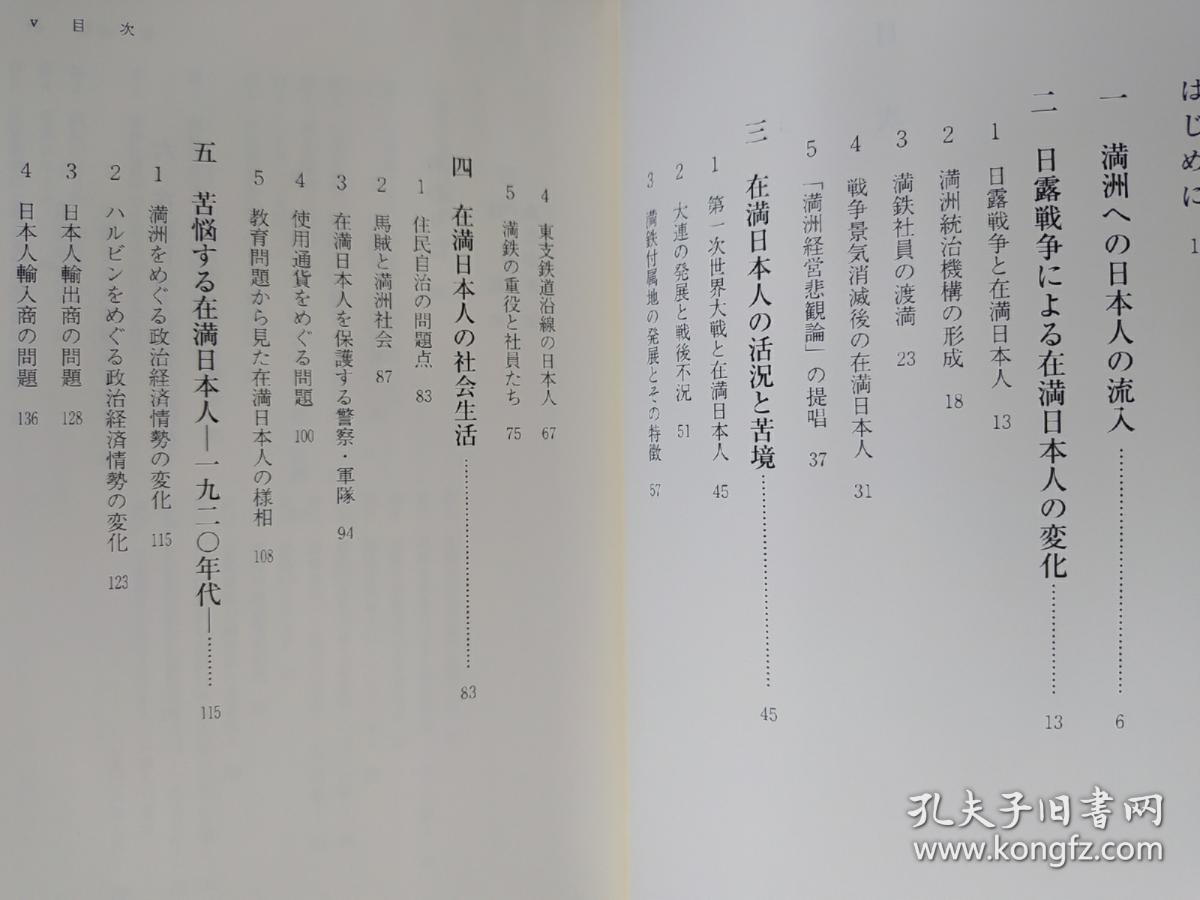 はじめに 1
一 満洲への日本人の流入………………………… 6
二 日露戦争による在満日本人の変化………… 13
1 日露戦争と在満日本人 13
2 満洲統治機構の形成 18
3 満鉄社員の渡満 23
4 戦争景気消滅後の在満日本人 31
5 「満洲経営悲観論」の提唱 37
三 在満日本人の活況と苦境…………………… 45
1 第一次世界大戦と在満日本人 45
2 大連の発展と戦後不況 51
3 満鉄付属地の発展とその特徴 57
v 目次
4 東支鉄道沿線の日本人 67
5 満鉄の重役と社員たち 75
四 在満日本人の社会生活……………………… 83
1 住民自治の問題点 83
2 馬賊と満洲社会 87
3 在満日本人を保護する警察・軍隊 94
4 使用通貨をめぐる問題 100
5 教育問題から見た在満日本人の様相 108
五 苦悩する在満日本人―一九二〇年代―……… 115
1 満洲をめぐる政治経済情勢の変化 115
2 ハルビンをめぐる政治経済情勢の変化 123
3 日本人輸出商の問題 128
4 日本人輸入商の問題 136
孔夫子旧书网
www.kongfz.com